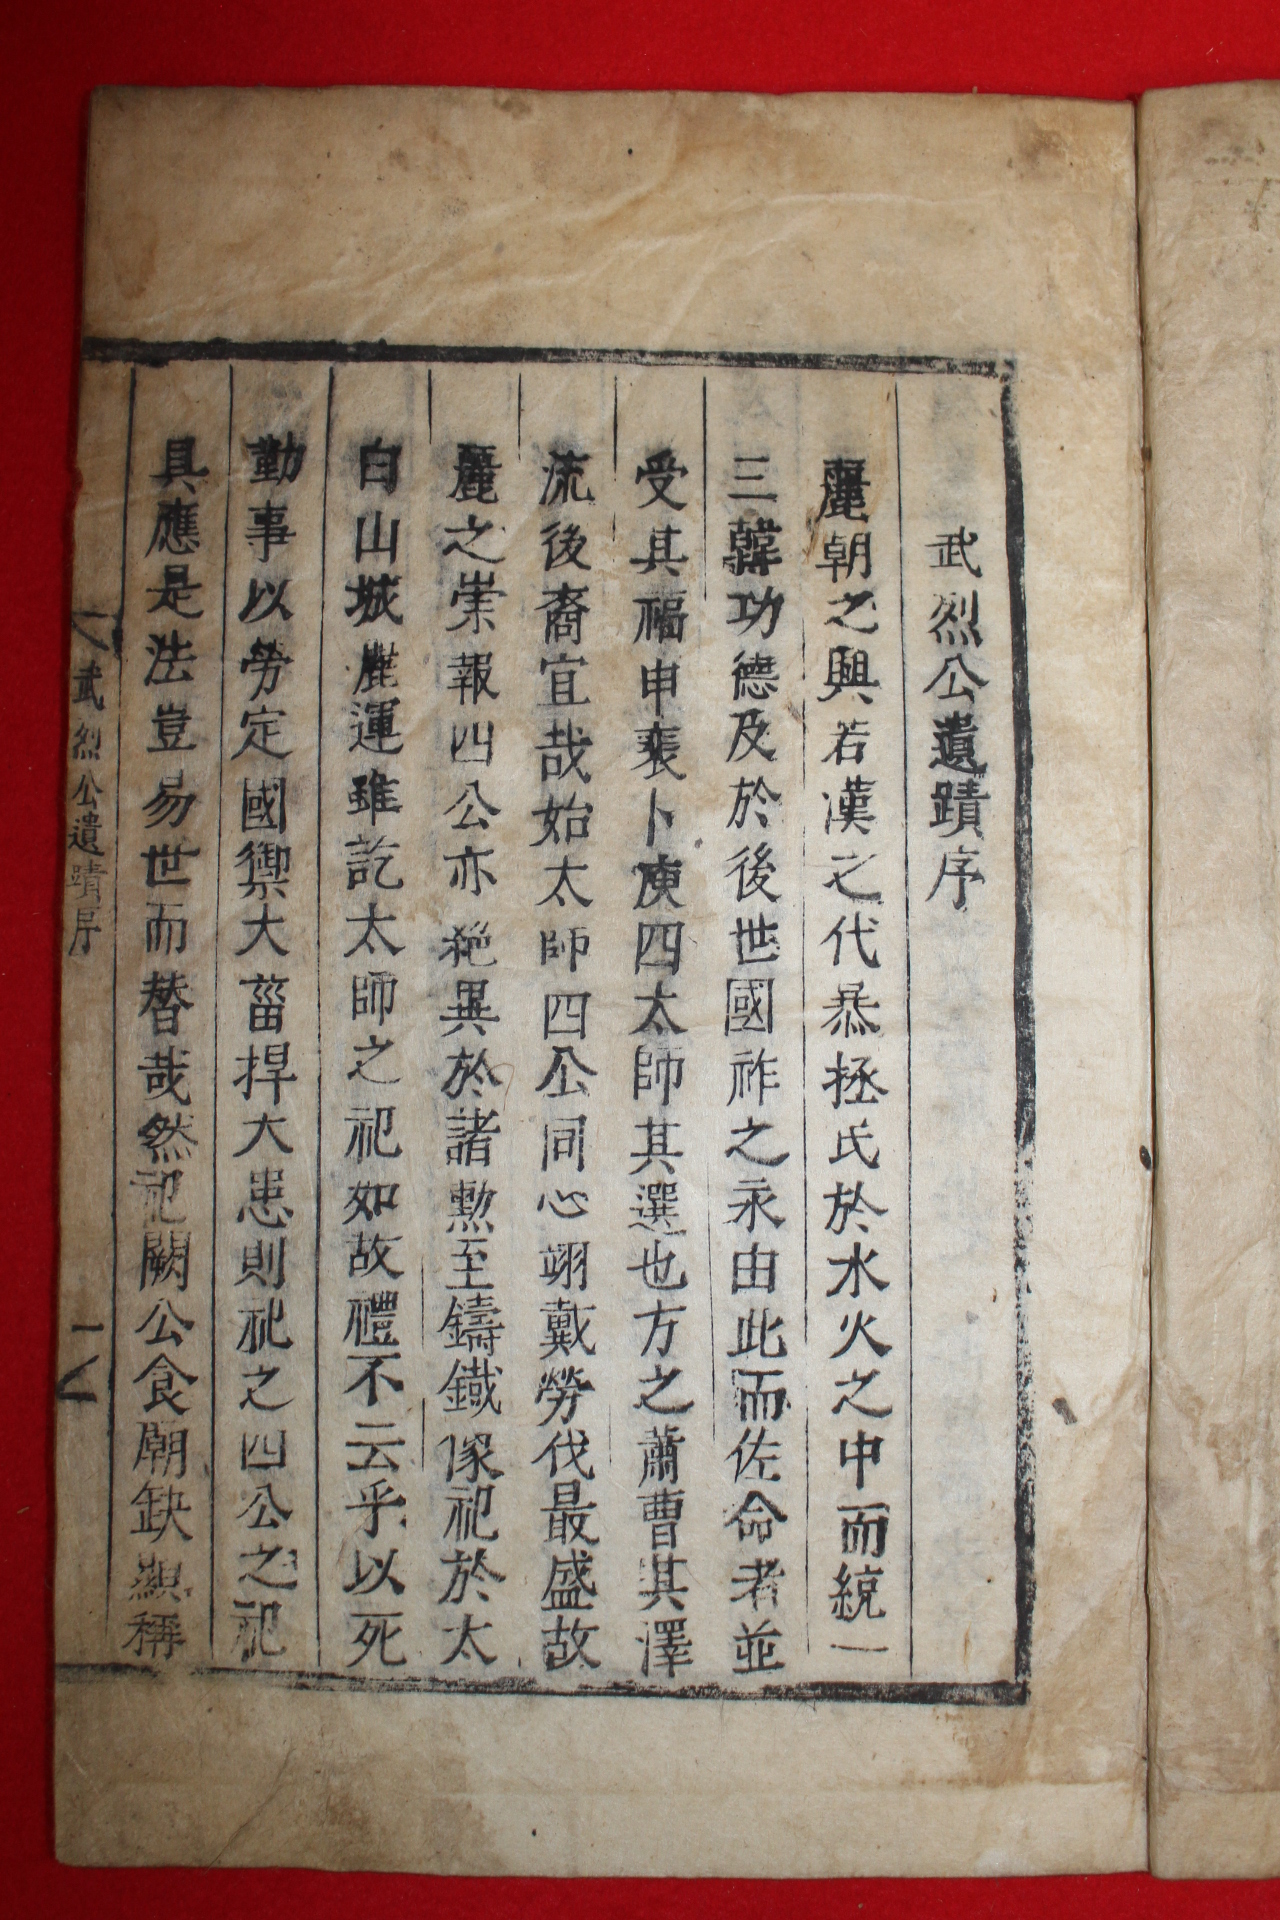 武烈公遺蹟序
麗朝之興若漢之代㬥拯民於水火之中而統一
三韓功德及於後世國祚之永由此而佐命者並
受其福申裵卜庾四太師其選也方之蕭曹其澤
流後裔宜哉始太師四公同心翊戴勞伐最盛故
麗之崇報四公亦絶異於諸勲至鑄鐵像祀於太
白山城麗運雖訖太師之祀如故禮不云乎以死
勤事以勞定國禦大菑捍大患則祀之四公之祀
具應是法豈易世而替哉然祀闕公食廟缺顯稱
武烈公遺蹟序
一